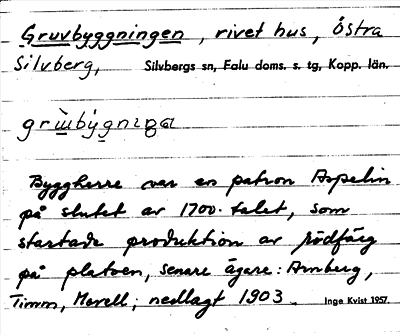 Gruvbyggningen, rivet hus, Östra
Silvberg, Silvbergs sn, Falu doms. s. tg, Kopp. län.
Byggherre var en patron Aspelin
på slutet av 1700-talet, som
startade produktion av rödfärg
på platsen, senare ägare: Arnberg,
Timm, Morell; nedlagt 1903. Inge Kvist 1957.